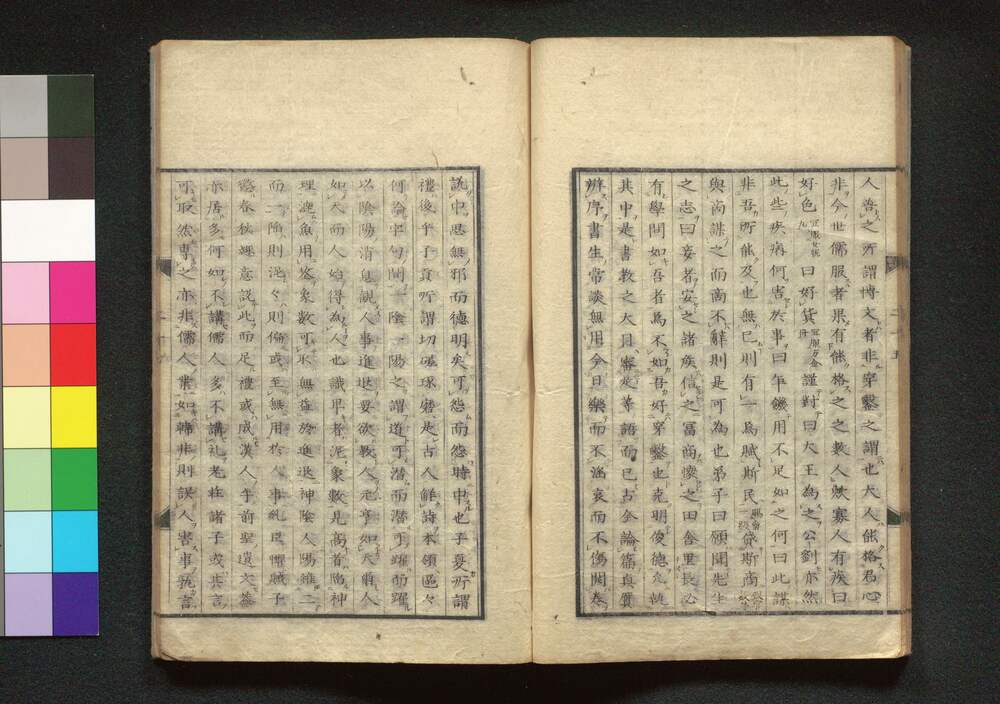 人善之所謂博文者非穿鑿之謂也大人能格君心
非今世儒服者果有能格之之數人歟寡人有疾曰
好色曰好貨謹對曰大王為之公劉亦然
此些疾病何害於事曰年饑用不足如之何曰此謀
非吾所能及也無已則有一為賊斯民貸斯商
與商謀之而商不辭則是可為也弟子曰願聞先生
之志曰妄者安之諸疾信之富商懷之田舍里長必
有學問如吾者焉不如吾好穿鑿也克明俊德
其中是書教之大目審是等語而已占全論篇真質
辨序書生常談無用今日樂而不滛哀而不傷関
訛中思無邪而德明矣可怨而怨時中也子夏所謂
禮後乎子貢所謂切磋球磨是占人鮮詩本領區々
何論字句間一陰一陽之謂道可潛而潛可躍而躍
以陰陽消息說人事進退要欲教人元亨如天有人
如天而人始得為人也識卑者泥象數見高者陷神
理漉魚用筌象數可取無益於進退神陰人陽雖二
而一陷則泥々則偷或至無用於人事乱臣懼賊子
春秋經意說此而足禮或成漢人乎前聖遺文
亦居多何如不講儒人多不講礼老莊諸子或其言
可取然専之亦非儒人業如韓非則誤人害事